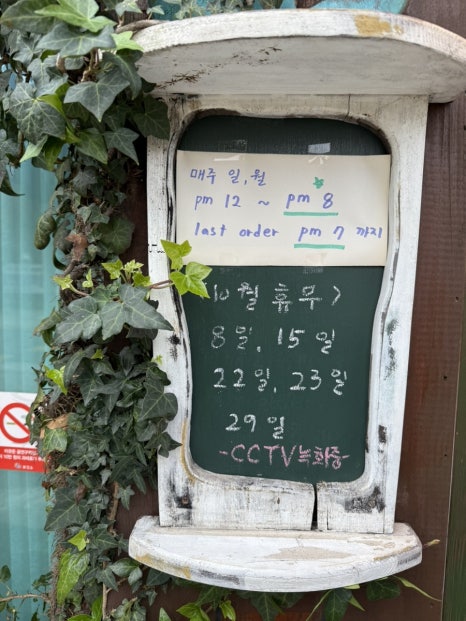 매주 일,월
pm 12 ~ pm 8
last order pm 7 까지
10월 휴무>
8일, 15일
22일, 23일
29일
-CCTV녹화중-